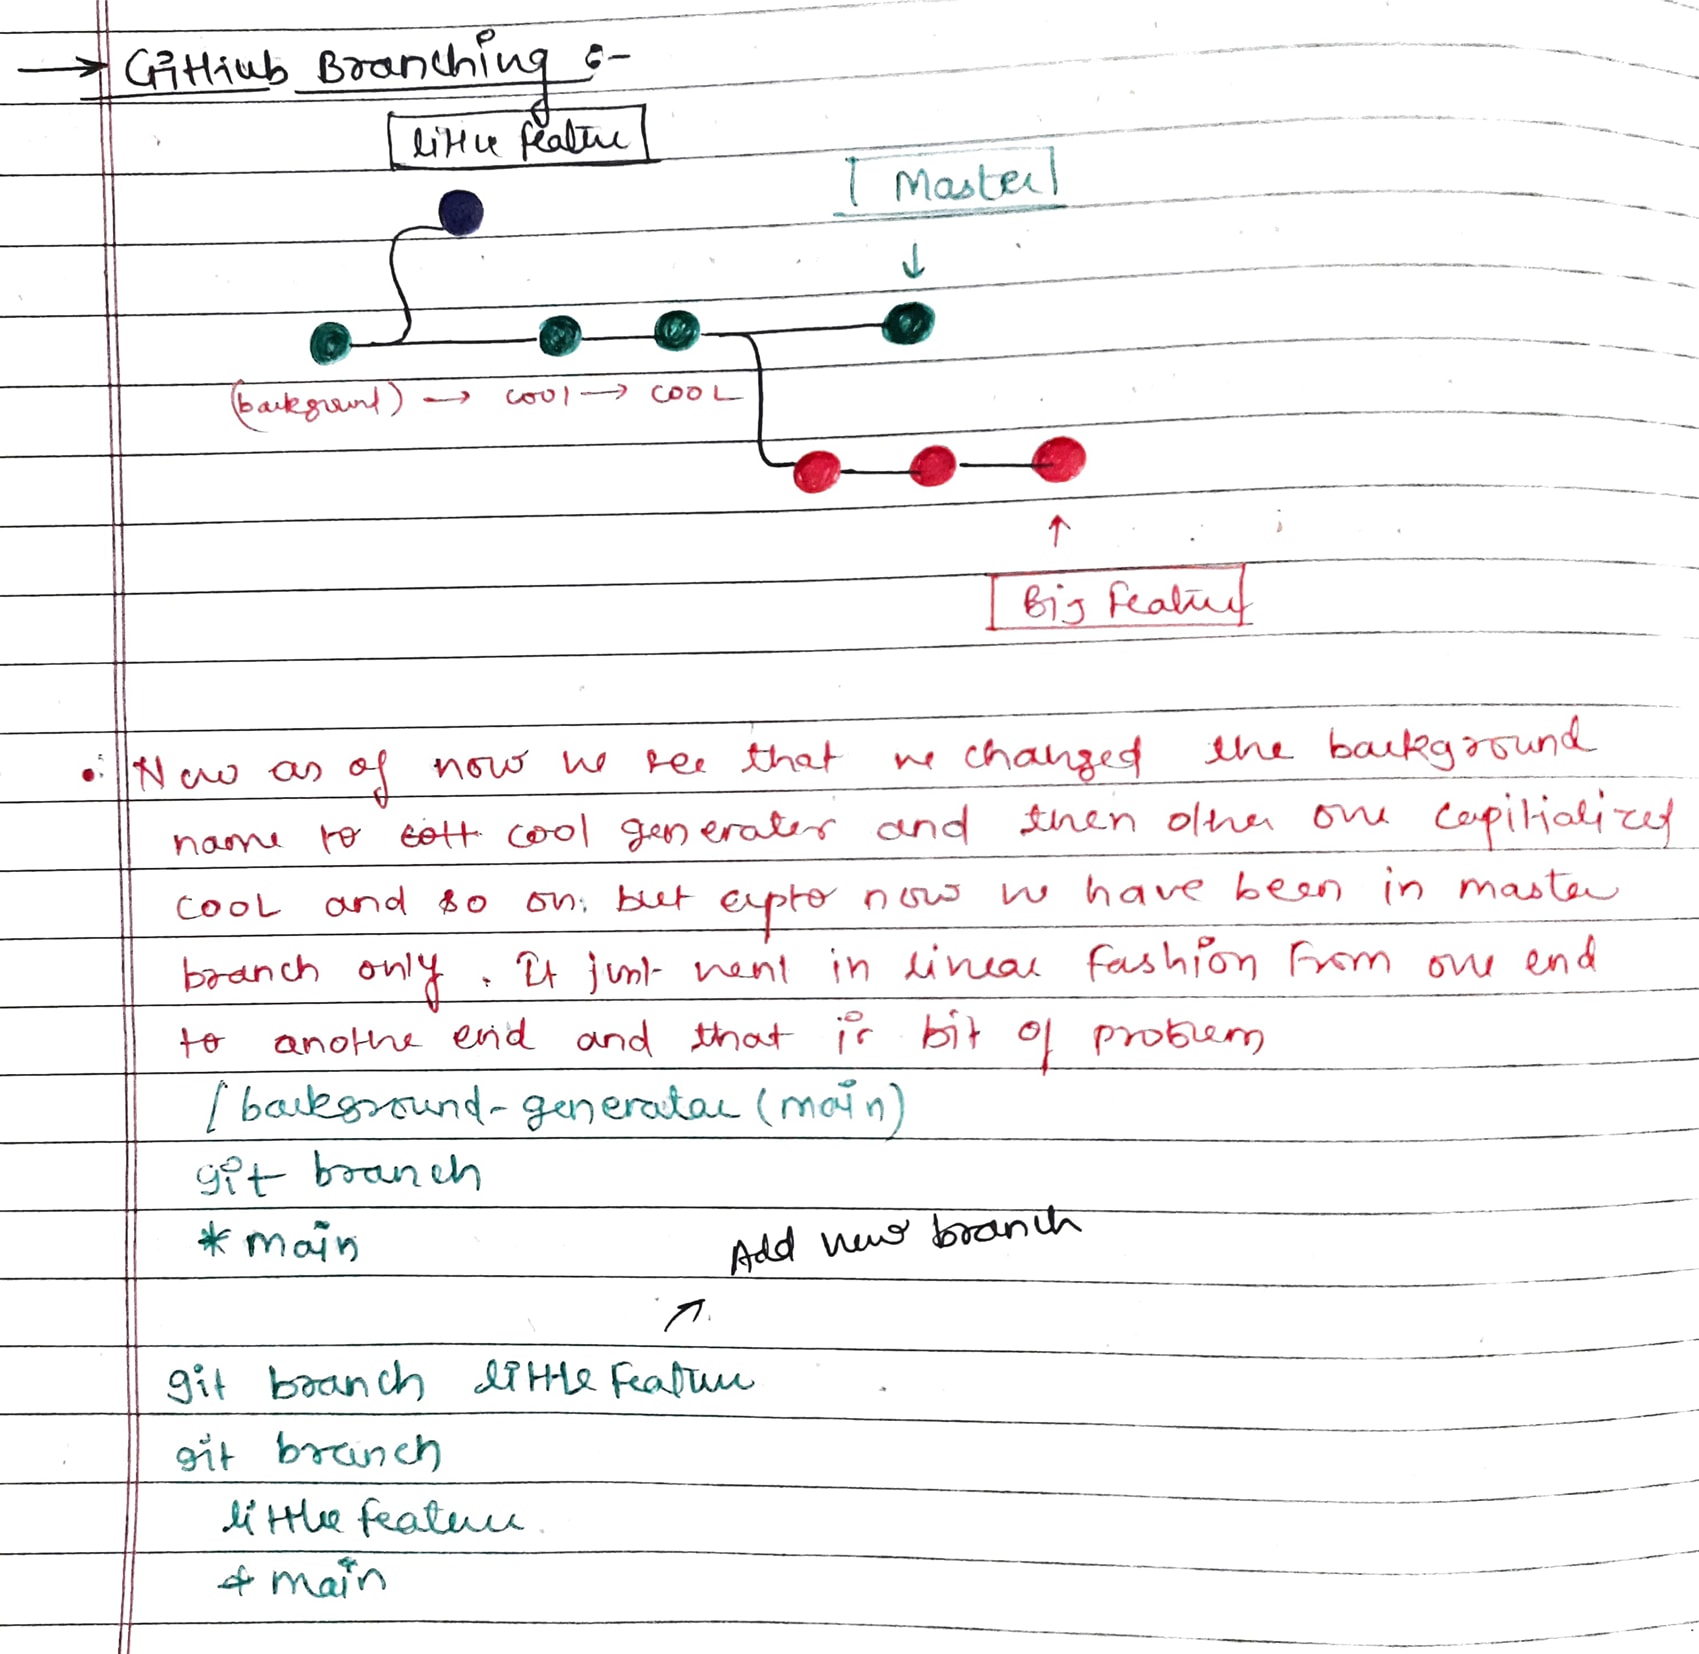 → GitHub Branching :-
little feature
Master
↓
(background) → cool → COOL
↑
Big Feature
• Now as of now we see that we changed the background
name to cool generator and then other one capitialized
COOL and so on. but upto now we have been in master
branch only. It just went in linear fashion from one end
to anothe end and that is bit of problem
/background-generator (main)
git branch
* main
Add new branch
↗
git branch little feature
git branch
little feature
* main